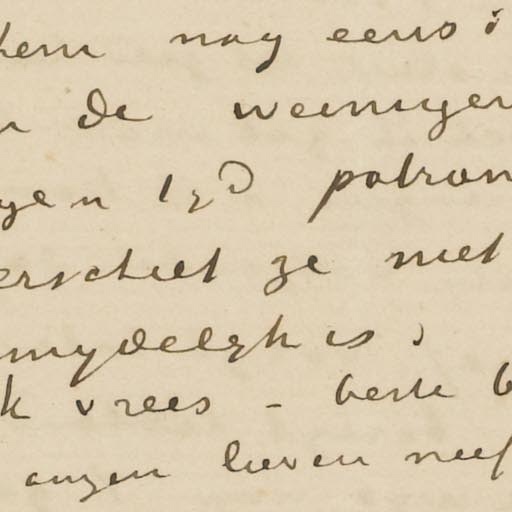 hem nog eens i
n de weinigen
gen tyd patron
erschiet ze niet
mydelyk is ;
k vrees - beste b
onzen lieven neef